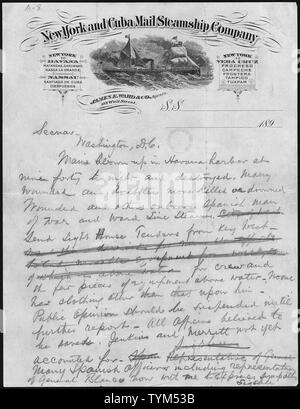 A-8
New York and Cuba Mail Steamship Company
NEW YORK
TO
HAVANA
MATANZAS, CARDENAS
SAGUA LA GRANDE
NASSAU
SANTIAGO DE CUBA
CIENFUEGOS
NEW YORK
TO
VERA CRUZ
PROGRESO
CAMPECHE
FRONTERA
TAMPICO
TUXPAM
JAMES E. WARD & CO.
113 Wall Street.
S.S.
189
Secnav
Washington, D.C.
Maine blown up in Havana harbor at
nine forty to night and destroyed. Many
wounded and doubtless more killed or drowned
Wounded and others on board Spanish man
of war and Ward Line Steamer.
Send Light House Tenders from Key West
for crew and
few pieces of equipment above water. None
has clothing other than that upon him.
Public opinion should be suspended until
further report. All officers believed to
be saved. Jenkins and Merritt not yet
accounted for. Representative of
Many Spanish officers including representative
of General Blanco now with me to express sympathy
Sigsbee
alamy
Image ID: TYM53B
www.alamy.com